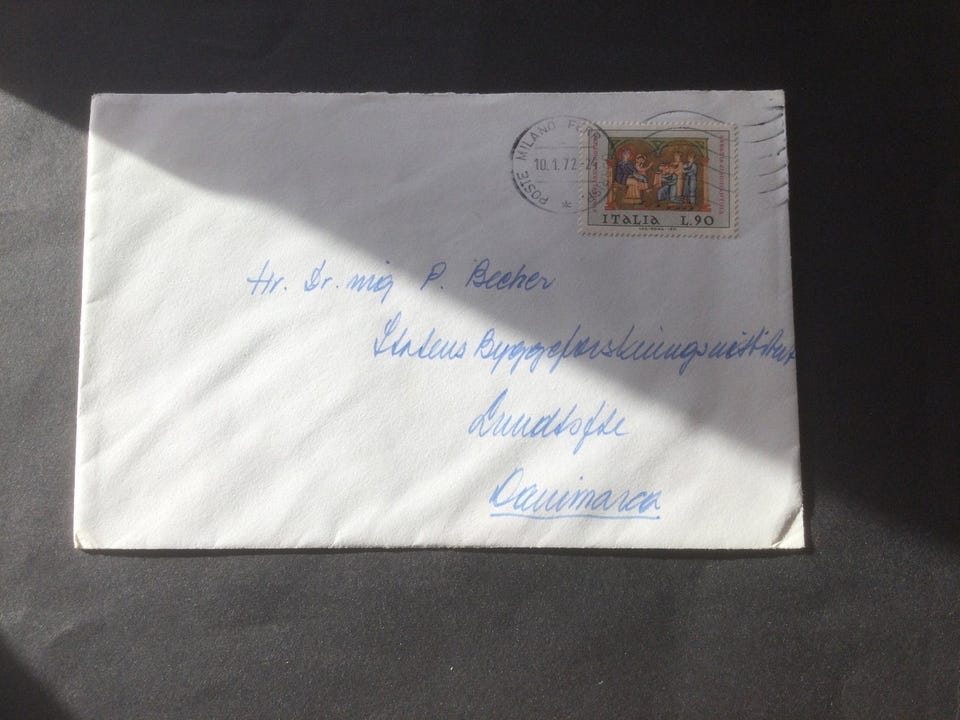 POSTE MILANO FERR
10.1.72-24
ITALIA L.90
Hr. Dr. ing P. Becher
Statens Byggeforskningsinstitut
Lundtofte
Danimarca